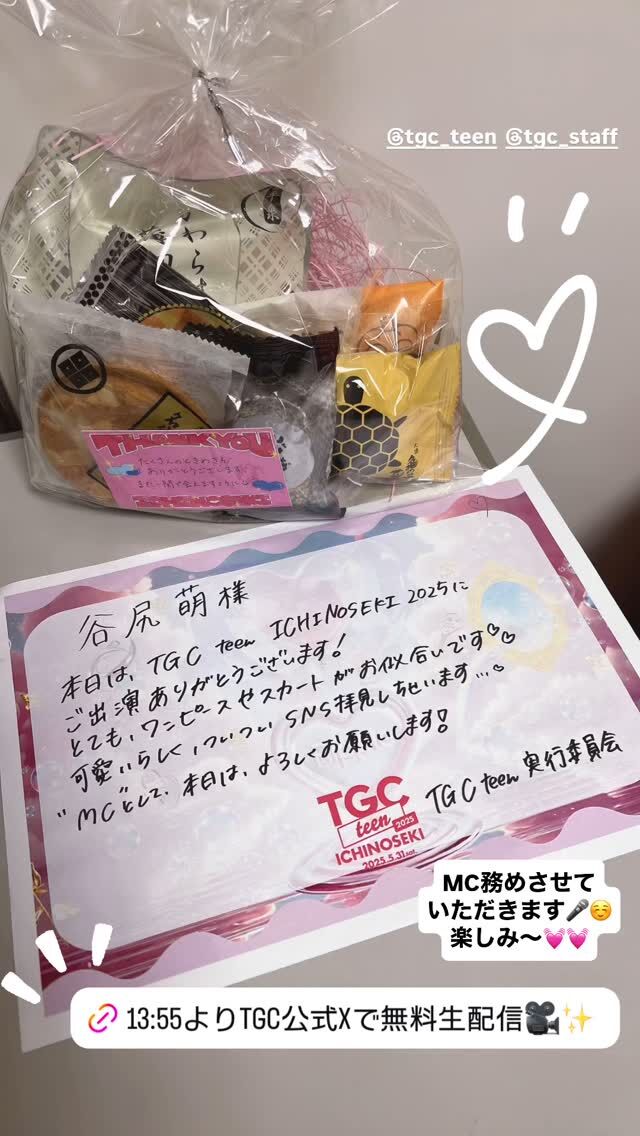 @tgc_teen @tgc_staff
THANK YOU
たくさんのときめきを
ありがとうございます!
ICHINOSEKI
谷尻 萌 様
本日は、TGC teen ICHINOSEKI 2025に
ご出演ありがとうございます!
とても、ワンピースやスカートがお似合いです♡♡
可愛いらしく、ついついSNS拝見しちゃいます...♡
"MC"として、本日は、よろしくお願いします!
TGC teen 実行委員会
TGC
teen 2025
ICHINOSEKI
2025.5.31sat.
MC務めさせて
いただきます🎤☺️
楽しみ〜💓💓
13:55よりTGC公式Xで無料生配信🎥✨